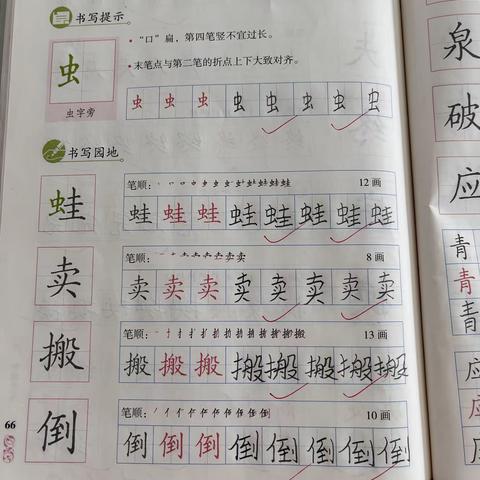 书写提示。
虫
虫字旁
·“口”扁，第四笔竖不宜过长。
·末笔点与第二笔的折点上下大致对齐。
虫虫虫虫虫虫虫虫
书写园地。
蛙
笔顺： 12画
蛙蛙蛙蛙蛙蛙蛙蛙
卖
笔顺： 8画
卖卖卖卖卖卖卖卖
搬
笔顺： 13画
搬搬搬搬搬搬搬搬
倒
笔顺： 10画
倒倒倒倒倒倒倒倒
66
泉
破
应
青
青
青
应
应